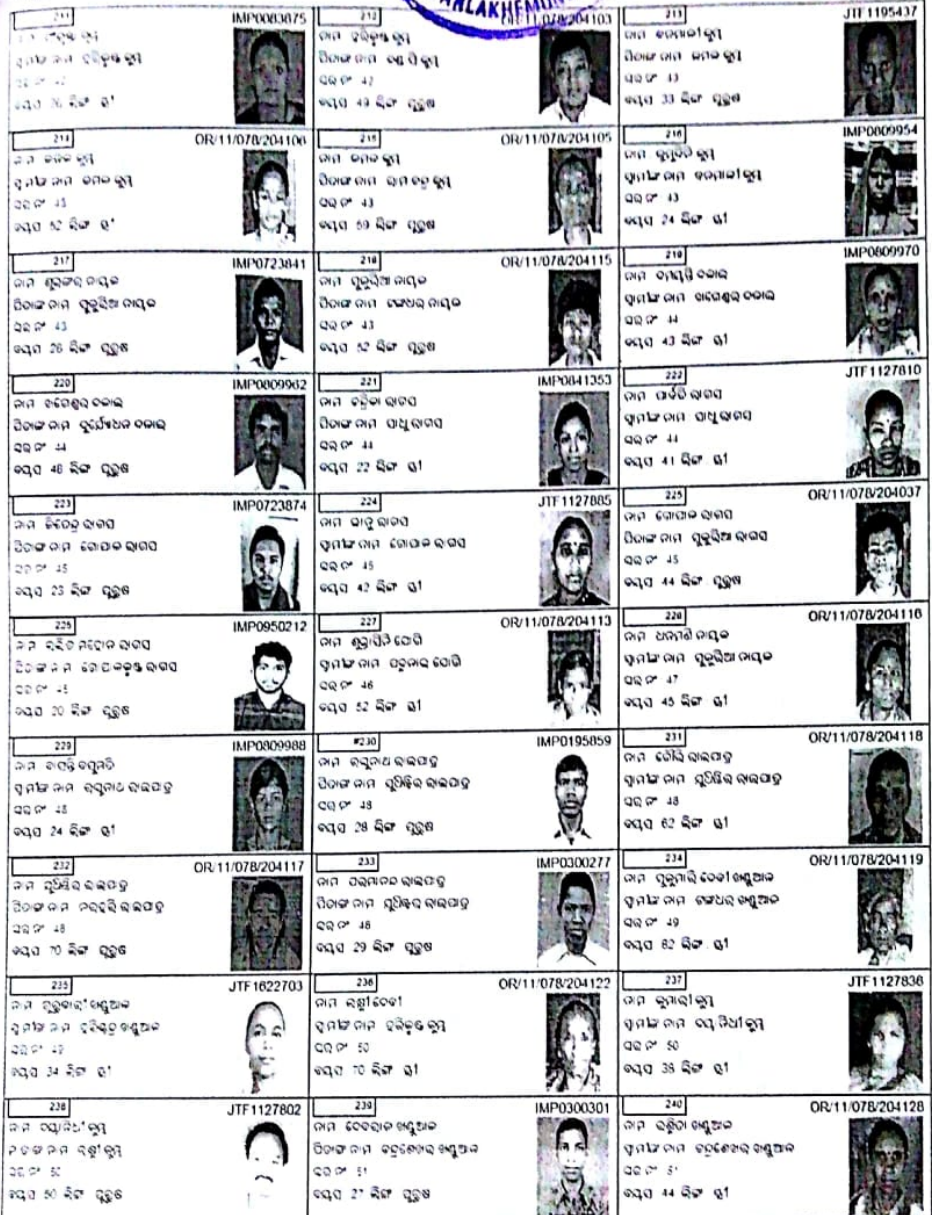 ANLAKHEMUN
211 IMP0083875
ବୟସ 26 ଲିଙ୍ଗ ସ୍ତ୍ରୀ
212 OR/11/078/204103
ନାମ ହରିକୃଷ୍ଣ କୁମ୍ଭ
ଘର ନଂ 42
ବୟସ 49 ଲିଙ୍ଗ ପୁରୁଷ
213 JTF1195437
ନାମ ବନମାଳୀ କୁମ୍ଭ
ପିତାଙ୍କ ନାମ କମଳ କୁମ୍ଭ
ଘର ନଂ 43
ବୟସ 33 ଲିଙ୍ଗ ପୁରୁଷ
214 OR/11/078/204106
ନାମ କନକ କୁମ୍ଭ
ସ୍ୱାମୀଙ୍କ ନାମ କମଳ କୁମ୍ଭ
ଘର ନଂ 43
ବୟସ 52 ଲିଙ୍ଗ ସ୍ତ୍ରୀ
215 OR/11/078/204105
ନାମ କମଳ କୁମ୍ଭ
ପିତାଙ୍କ ନାମ ରାମ ଚନ୍ଦ୍ର କୁମ୍ଭ
ଘର ନଂ 43
ବୟସ 59 ଲିଙ୍ଗ ପୁରୁଷ
216 IMP0809954
ନାମ କୁମୁଦିନି କୁମ୍ଭ
ସ୍ୱାମୀଙ୍କ ନାମ ବନମାଳୀ କୁମ୍ଭ
ଘର ନଂ 43
ବୟସ 24 ଲିଙ୍ଗ ସ୍ତ୍ରୀ
217 IMP0723841
ନାମ ଶୁଭଙ୍କର ନାୟକ
ପିତାଙ୍କ ନାମ ସୁକୁରିଆ ନାୟକ
ଘର ନଂ 43
ବୟସ 26 ଲିଙ୍ଗ ପୁରୁଷ
218 OR/11/078/204115
ନାମ ସୁକୁରିଆ ନାୟକ
ପିତାଙ୍କ ନାମ ଟଙ୍କଧର ନାୟକ
ଘର ନଂ 43
ବୟସ 52 ଲିଙ୍ଗ ପୁରୁଷ
219 IMP0809970
ନାମ ଦମୟନ୍ତି ଦଳାଇ
ସ୍ୱାମୀଙ୍କ ନାମ ଖଗେଶ୍ୱର ଦଳାଇ
ଘର ନଂ 44
ବୟସ 43 ଲିଙ୍ଗ ସ୍ତ୍ରୀ
220 IMP0809962
ନାମ ଖଗେଶ୍ୱର ଦଳାଇ
ପିତାଙ୍କ ନାମ ଦୁର୍ଯ୍ୟୋଧନ ଦଳାଇ
ଘର ନଂ 44
ବୟସ 48 ଲିଙ୍ଗ ପୁରୁଷ
221 IMP0841353
ନାମ ଚନ୍ଦ୍ରିକା ରାଗସ
ପିତାଙ୍କ ନାମ ସାଧୁ ରାଗସ
ଘର ନଂ 44
ବୟସ 22 ଲିଙ୍ଗ ସ୍ତ୍ରୀ
222 JTF1127810
ନାମ ପାର୍ବତି ରାଗସ
ସ୍ୱାମୀଙ୍କ ନାମ ସାଧୁ ରାଗସ
ଘର ନଂ 44
ବୟସ 41 ଲିଙ୍ଗ ସ୍ତ୍ରୀ
223 IMP0723874
ନାମ ଜିତେନ୍ଦ୍ର ରାଗସ
ପିତାଙ୍କ ନାମ ଗୋପାଳ ରାଗସ
ଘର ନଂ 45
ବୟସ 23 ଲିଙ୍ଗ ପୁରୁଷ
224 JTF1127885
ନାମ ଭାନୁ ରାଗସ
ସ୍ୱାମୀଙ୍କ ନାମ ଗୋପାଳ ରାଗସ
ଘର ନଂ 45
ବୟସ 42 ଲିଙ୍ଗ ସ୍ତ୍ରୀ
225 OR/11/078/204037
ନାମ ଗୋପାଳ ରାଗସ
ପିତାଙ୍କ ନାମ ସୁକୁରିଆ ରାଗସ
ଘର ନଂ 45
ବୟସ 44 ଲିଙ୍ଗ ପୁରୁଷ
226 IMP0950212
ନାମ ଲଳିତ ମହୋନ ରାଗସ
ପିତାଙ୍କ ନାମ ଗୋପାଳକୃଷ୍ଣ ରାଗସ
ଘର ନଂ 45
ବୟସ 20 ଲିଙ୍ଗ ପୁରୁଷ
227 OR/11/078/204113
ନାମ ଯୋଗି
ସ୍ୱାମୀଙ୍କ ନାମ ପଦ୍ମନାଭ ଯୋଗି
ଘର ନଂ 46
ବୟସ 52 ଲିଙ୍ଗ ସ୍ତ୍ରୀ
228 OR/11/078/204116
ନାମ ଧନମଣି ନାୟକ
ସ୍ୱାମୀଙ୍କ ନାମ ସୁକୁରିଆ ନାୟକ
ଘର ନଂ 47
ବୟସ 45 ଲିଙ୍ଗ ସ୍ତ୍ରୀ
229 IMP0809988
ନାମ ବାସନ୍ତି ବସୁମତି
ସ୍ୱାମୀଙ୍କ ନାମ ରଘୁନାଥ ରାଇପାତ୍ର
ଘର ନଂ 48
ବୟସ 24 ଲିଙ୍ଗ ସ୍ତ୍ରୀ
#230 IMP0195859
ନାମ ରଘୁନାଥ ରାଇପାତ୍ର
ପିତାଙ୍କ ନାମ ଯୁଧିଷ୍ଠିର ରାଇପାତ୍ର
ଘର ନଂ 48
ବୟସ 28 ଲିଙ୍ଗ ପୁରୁଷ
231 OR/11/078/204118
ନାମ ଗୌରି ରାଇପାତ୍ର
ସ୍ୱାମୀଙ୍କ ନାମ ଯୁଧିଷ୍ଠିର ରାଇପାତ୍ର
ଘର ନଂ 48
ବୟସ 62 ଲିଙ୍ଗ ସ୍ତ୍ରୀ
232 OR/11/078/204117
ନାମ ଯୁଧିଷ୍ଠିର ରାଇପାତ୍ର
ପିତାଙ୍କ ନାମ ନରହରି ରାଇପାତ୍ର
ଘର ନଂ 48
ବୟସ 70 ଲିଙ୍ଗ ପୁରୁଷ
233 IMP0300277
ନାମ ପରମାନନ୍ଦ ରାଇପାତ୍ର
ପିତାଙ୍କ ନାମ ଯୁଧିଷ୍ଠିର ରାଇପାତ୍ର
ଘର ନଂ 48
ବୟସ 29 ଲିଙ୍ଗ ପୁରୁଷ
234 OR/11/078/204119
ନାମ ସୁକୁମାରି ଦେବୀ ଖଣ୍ଡୁଆଳ
ସ୍ୱାମୀଙ୍କ ନାମ ଟଙ୍କଧର ଖଣ୍ଡୁଆଳ
ଘର ନଂ 49
ବୟସ 62 ଲିଙ୍ଗ ସ୍ତ୍ରୀ
235 JTF1622703
ନାମ ଗୁରୁବାରୀ ଖଣ୍ଡୁଆଳ
ସ୍ୱାମୀଙ୍କ ନାମ ହରିଶ୍ଚନ୍ଦ୍ର ଖଣ୍ଡୁଆଳ
ଘର ନଂ 49
ବୟସ 34 ଲିଙ୍ଗ ସ୍ତ୍ରୀ
236 OR/11/078/204122
ନାମ ଲକ୍ଷ୍ମୀ ଦେବୀ
ସ୍ୱାମୀଙ୍କ ନାମ ହରିକୃଷ୍ଣ କୁମ୍ଭ
ଘର ନଂ 50
ବୟସ 70 ଲିଙ୍ଗ ସ୍ତ୍ରୀ
237 JTF1127836
ନାମ କୁମାରୀ କୁମ୍ଭ
ସ୍ୱାମୀଙ୍କ ନାମ ଦୟାନିଧୀ କୁମ୍ଭ
ଘର ନଂ 50
ବୟସ 38 ଲିଙ୍ଗ ସ୍ତ୍ରୀ
238 JTF1127802
ନାମ ଦୟାନିଧୀ କୁମ୍ଭ
ମାତାଙ୍କ ନାମ ଲକ୍ଷ୍ମୀ କୁମ୍ଭ
ଘର ନଂ 50
ବୟସ 50 ଲିଙ୍ଗ ପୁରୁଷ
239 IMP0300301
ନାମ ଦେବରାଜ ଖଣ୍ଡୁଆଳ
ପିତାଙ୍କ ନାମ ଚନ୍ଦ୍ରଶେଖର ଖଣ୍ଡୁଆଳ
ଘର ନଂ 51
ବୟସ 27 ଲିଙ୍ଗ ପୁରୁଷ
240 OR/11/078/204128
ନାମ ଲଳିତା ଖଣ୍ଡୁଆଳ
ସ୍ୱାମୀଙ୍କ ନାମ ଚନ୍ଦ୍ରଶେଖର ଖଣ୍ଡୁଆଳ
ଘର ନଂ 51
ବୟସ 44 ଲିଙ୍ଗ ସ୍ତ୍ରୀ